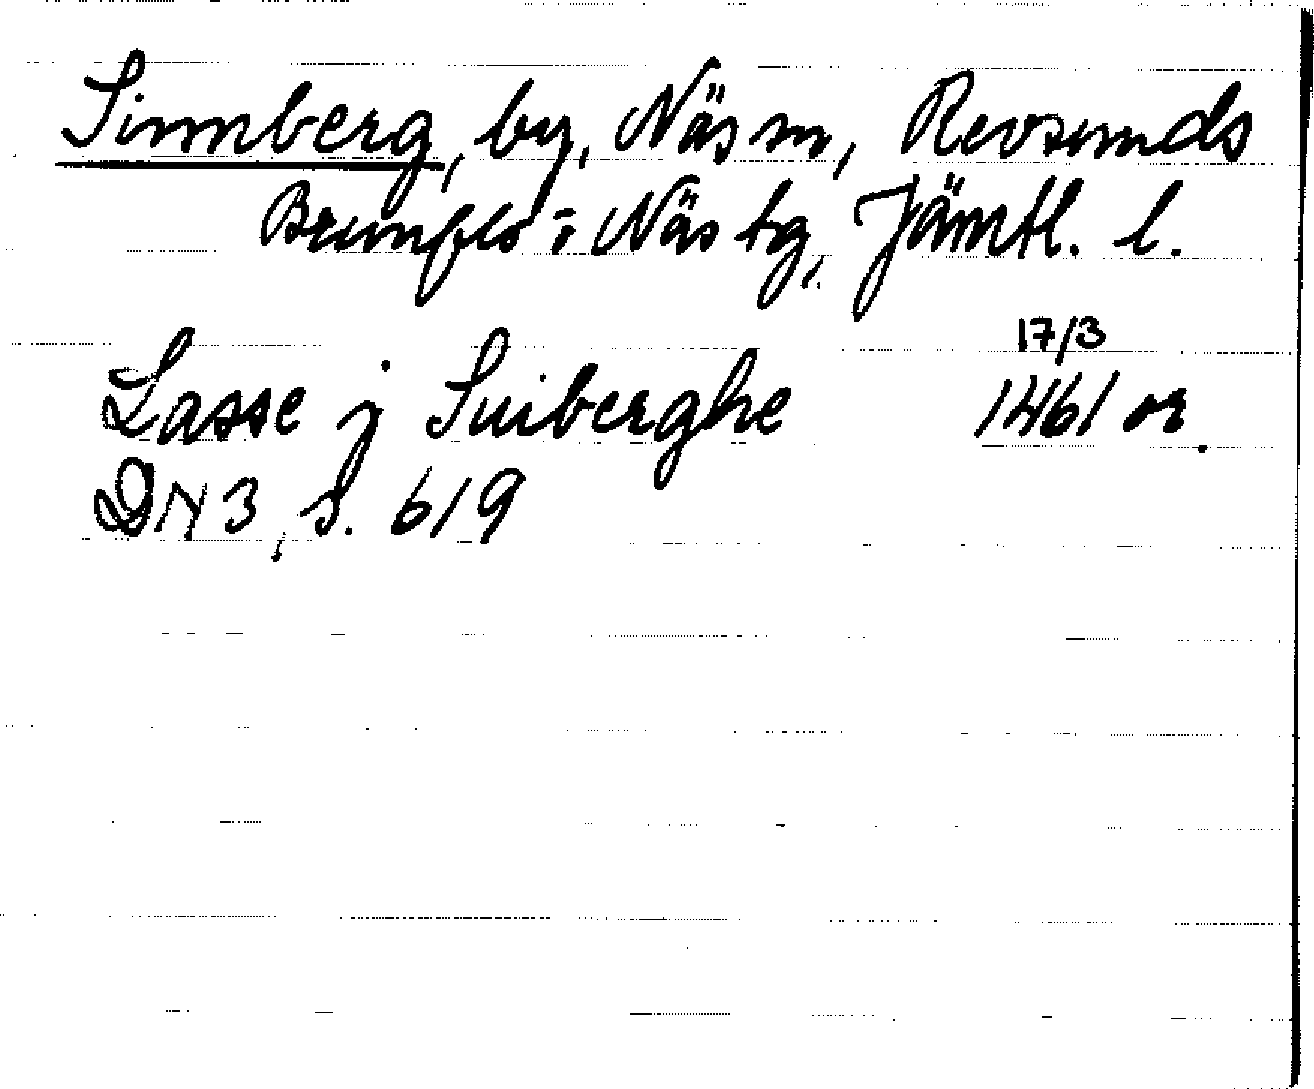 Sinnberg, by, Näs sn, Revsunds
Brunflo o Näs tg, Jämtl. l.
17/3
Lasse j Suiberghe 1461 or.
DN 3, s. 619